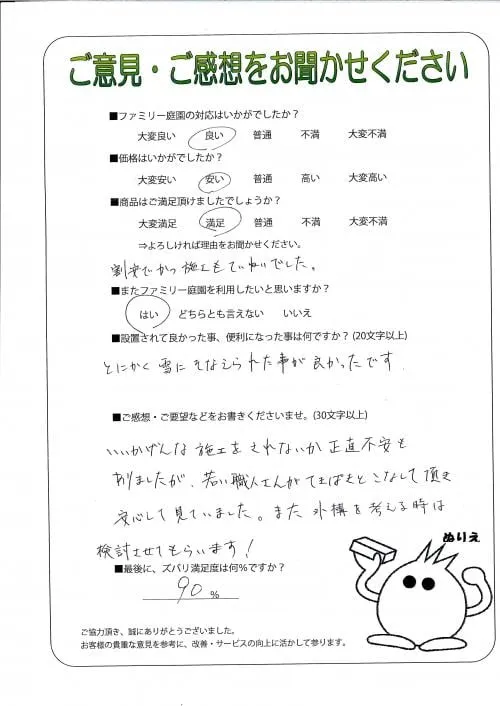 ご意見・ご感想をお聞かせください
■ファミリー庭園の対応はいかがでしたか？
大変良い 良い 普通 不満 大変不満
■価格はいかがでしたか？
大変安い 安い 普通 高い 大変高い
■商品はご満足頂けましたでしょうか？
大変満足 満足 普通 不満 大変不満
⇒よろしければ理由をお聞かせください。
割安でかつ施工もていねいでした。
■またファミリー庭園を利用したいと思いますか？
はい どちらとも言えない いいえ
■設置されて良かった事、便利になった事は何ですか？(20文字以上)
とにかく雪にそなえられた事が良かったです
■ご感想・ご要望などをお書きくださいませ。(30文字以上)
いいかげんな施工をされないか正直不安も
ありましたが、若い職人さんがてきぱきとこなして頂き
安心して見ていました。また外構を考える時は
検討させてもらいます！
ぬりえ
■最後に、ズバリ満足度は何%ですか？
90 %
ご協力頂き、誠にありがとうございました。
お客様の貴重な意見を参考に、改善・サービスの向上に活かして参ります。